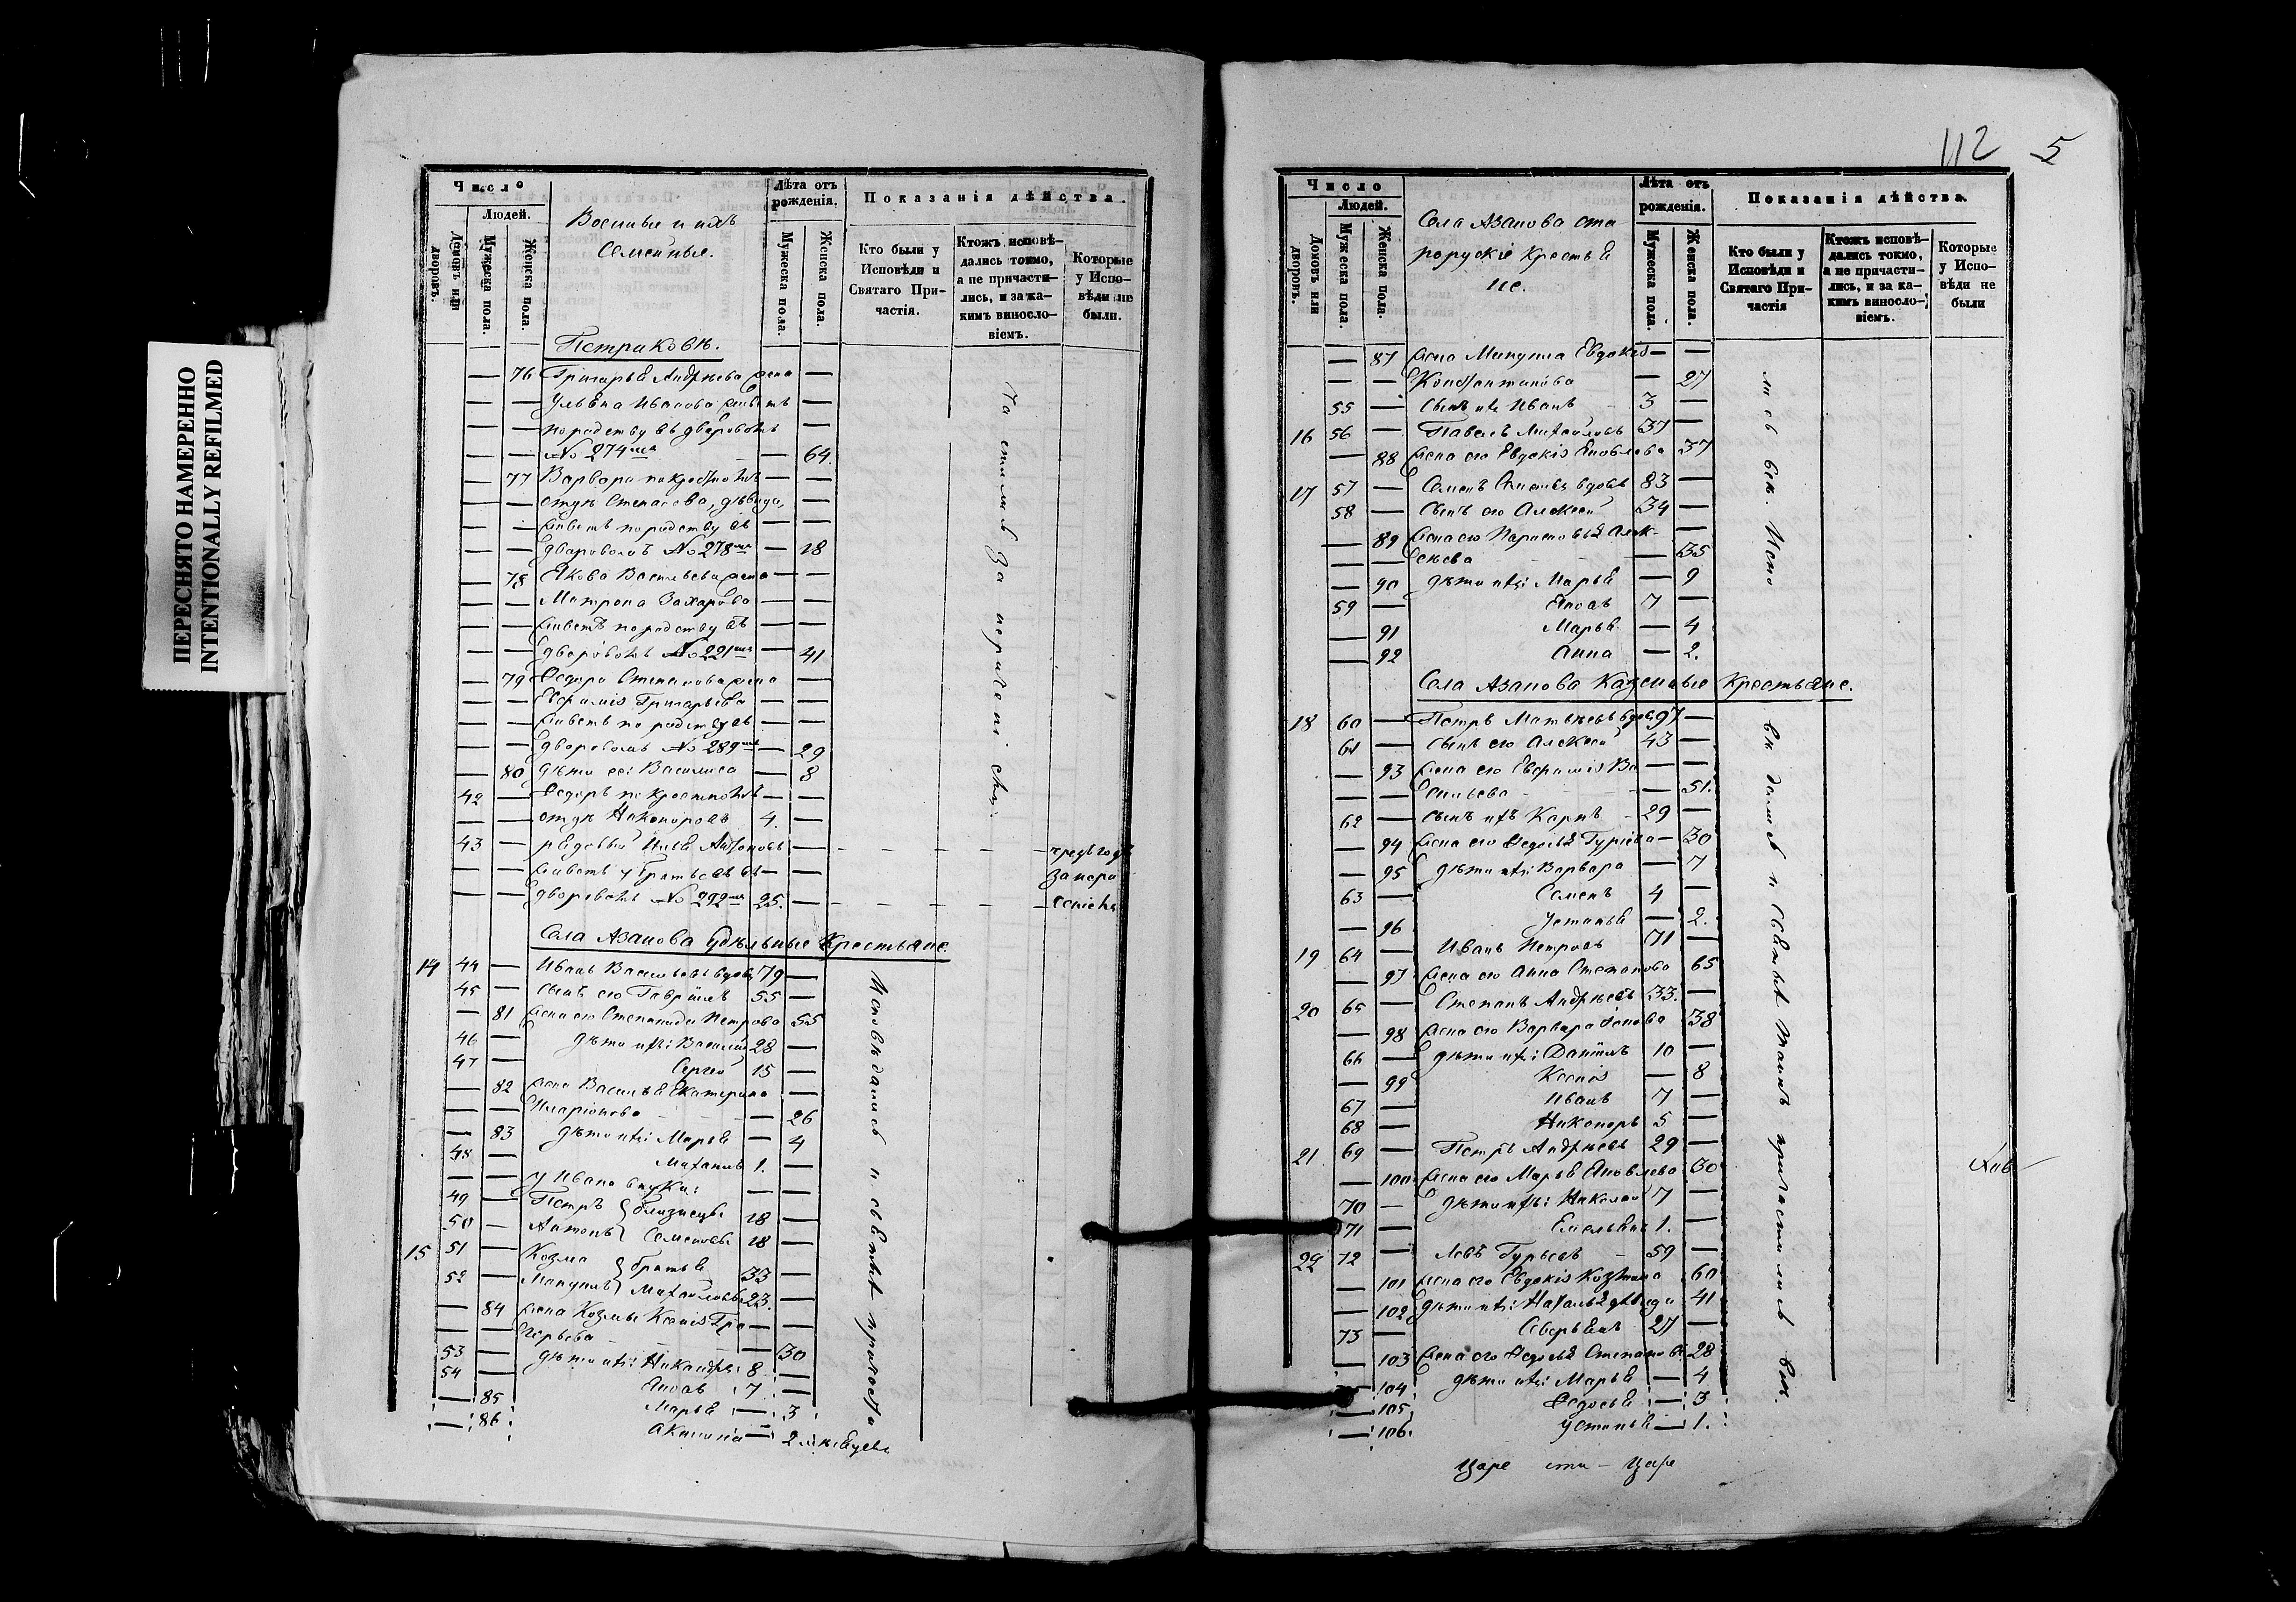 ПЕРЕСНЯТО НАМЕРЕННО
INTENTIONALLY REFILMED
Число
Людей.
Домовъ или дворовъ.
Мужеска пола.
Женска пола.
Военные и ихъ
Семейные.
Лѣта отъ рожденія.
Мужеска пола.
Женска пола.
Показанія дѣйства.
Кто были у Исповѣди и Святаго Причастія.
Ктожъ исповѣдались токмо, а не причастились, и за какимъ винословіемъ.
Которые у Исповѣди не были.
Петраковѣ.
— 76 Григорья Андрѣева жена —
— — Ульяна Иванова живетъ —
— — по родству въ дворовомъ —
— — № 274мъ — 64.
— 77 Варвара — —
— — Степанова, дѣвица,
— — живетъ по родству въ — —
— — дворовомъ № 278мъ — 18
— 78 Якова Васильева жена — —
— — Матрона Захарова — —
— — живетъ по родству въ — —
— — дворовомъ № 291мъ — 41
— 79 Федора Степанова жена —
— — Евфимія Григорьева — —
— — живетъ по родству въ — —
— — дворовомъ № 289мъ — 29
— 80 дѣти ея: Василиса — 8
42 — Федоръ — —
— — Никаноровъ 4. —
43 — рядовый Илья Антоновъ — — — —
— — живетъ у братьевъ въ — —
— — дворовомъ № 292мъ 25. —
Села Азанова Удѣльные Крестьяне.
14 44 — Иванъ Васильевъ вдовъ 79 —
45 — сынъ его Гавріилъ 55 —
— 81 жена его Степанида Петрова 55
46 — дѣти ихъ: Василій 28 —
47 — Сергей 15 —
— 82 жена Василья Екатерина
— — Иларіонова — 26
— 83 дѣти ихъ: Марья — 4
48 — Михаилъ 1. —
— — у Ивана внуки: — —
49 — Петръ } близнецы 18 —
50 — Антонъ } Семеновы 18 —
15 51 — Козма } братья 33 —
52 — Никаноръ } Михайловы 23. —
— 84 жена Козмы Ксенія Гри — —
— — горьева — 30
53 — дѣти ихъ: Никандръ 8 —
54 — Яковъ 7. —
— 85 Марья — 3
— 86 Акилина — 2 мѣсяцевъ
Исповѣдались и святыхъ
112 5
Число
Людей.
Домовъ или дворовъ.
Мужеска пола.
Женска пола.
Села Азанова ста
рорускіе крестья
не.
Лѣта отъ рожденія.
Мужеска пола.
Женска пола.
Показанія дѣйства.
Кто были у Исповѣди и Святаго Причастія
Ктожъ исповѣдались токмо, а не причастились, и за какимъ винословіемъ.
Которые у Исповѣди не были
— 87 жена Евдокія — —
— — Константинова — 27
55 — сынъ ихъ Иванъ 3 —
16 56 — Павелъ Михайловъ 37 —
— 88 жена его Евдокія Яковлева 37
17 57 — Семенъ вдовъ 83 —
58 — сынъ его Алексей 34 —
— 89 жена его Парасковья Алек- —
— — сѣева — 35
— 90 дѣти ихъ: Марья — 9
59 — Яковъ 7 —
— 91 Марья — 4
— 92 Анна — 2.
Села Азанова Казенные Крестьяне.
18 60 — Петръ Матвѣевъ вдовъ 97 —
61 — сынъ его Алексей 43 —
— 93 жена его Евфимія Ва — —
— — сильева — 51.
62 — сынъ ихъ Карпъ 29 —
— 94 жена его Федосья Гуріева — 30
— 95 дѣти ихъ: Варвара — 7
63 — Семенъ 4 —
— 96 Устинья — 2.
19 64 — Иванъ Петровъ 71 —
— 97 жена его Анна Степанова 65
20 65 — Степанъ Андрѣевъ 33. —
— 98 жена его Варвара 38
66 — дѣти ихъ: Даніилъ 10 —
— 99 Ксенія — 8
67 — Иванъ 7 —
68 — Никаноръ 5 —
21 69 — Петръ Андрѣевъ 29 —
— 100 жена его Марья Яковлева 30
70 — дѣти ихъ: Николай 7 —
71 — Емельянъ 1. —
22 72 — Левъ Гурьевъ 59 —
— 101 жена его Евдокія Козмина 60
— 102 дѣти ихъ: Наталья дѣвица 41
73 — Северьянъ 27 —
— 103 жена его Федосья Степанова 28
— 104 дѣти ихъ: Марья — 4
— 105 Федосья — 3
— 106 Устинья — 1.